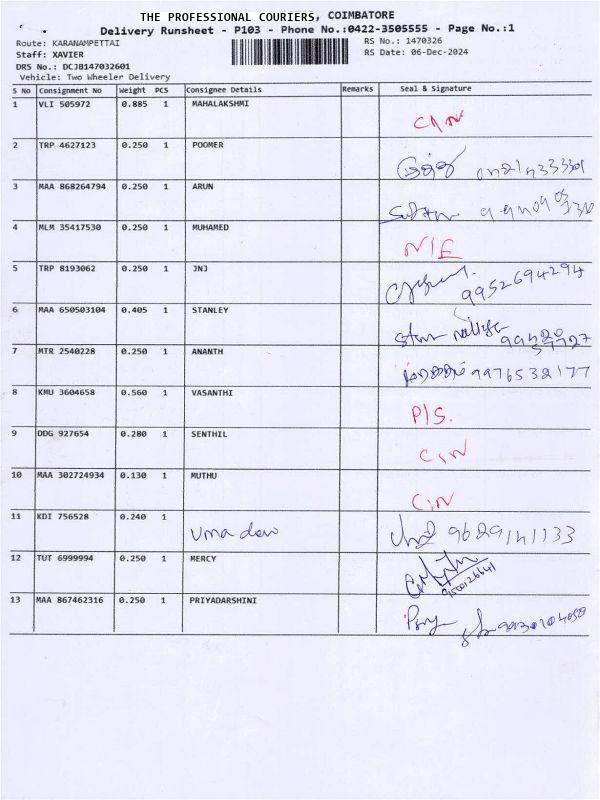 THE PROFESSIONAL COURIERS, COIMBATORE
Delivery Runsheet - P103 - Phone No.:0422-3505555 - Page No.:1
Route: KARANAMPETTAI
RS No.: 1470326
Staff: XAVIER
RS Date: 06-Dec-2024
DRS No.: DCJB147032601
Vehicle: Two Wheeler Delivery
S No Consignment No Weight PCS Consignee Details Remarks Seal & Signature
1 VLI 505972 0.885 1 MAHALAKSHMI
2 TRP 4627123 0.250 1 POOMER
3 MAA 868264794 0.250 1 ARUN
4 MLM 35417530 0.250 1 MUHAMED N/E
5 TRP 8193062 0.250 1 JNJ 9952694294
6 MAA 650503104 0.405 1 STANLEY
7 MTR 2540228 0.250 1 ANANTH 9976532177
8 KMU 3604658 0.560 1 VASANTHI P/S.
9 DDG 927654 0.280 1 SENTHIL
10 MAA 302724934 0.130 1 MUTHU
11 KDI 756528 0.240 1 Uma devi
12 TUT 6999994 0.250 1 MERCY
13 MAA 867462316 0.250 1 PRIYADARSHINI